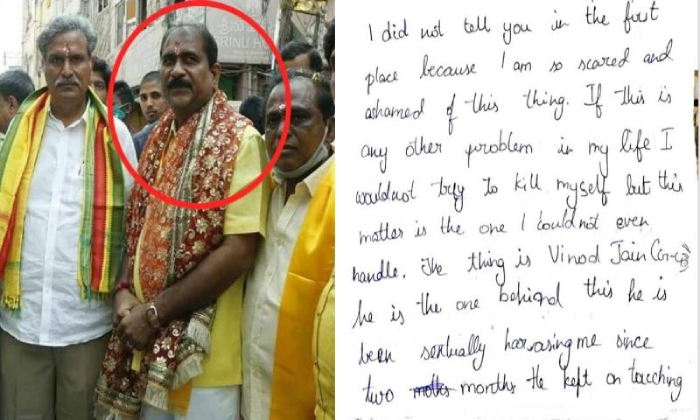 RINU H
I did not tell you in the first
place because I am so scared and
ashamed of this thing. If this is
any other problem in my life I
wouldnot try to kill myself but this
matter is the one I couldnot even
handle. The thing is Vinod Jain
he is the one behiend this he is
been sexually harrasing me since
two months He kept on touching